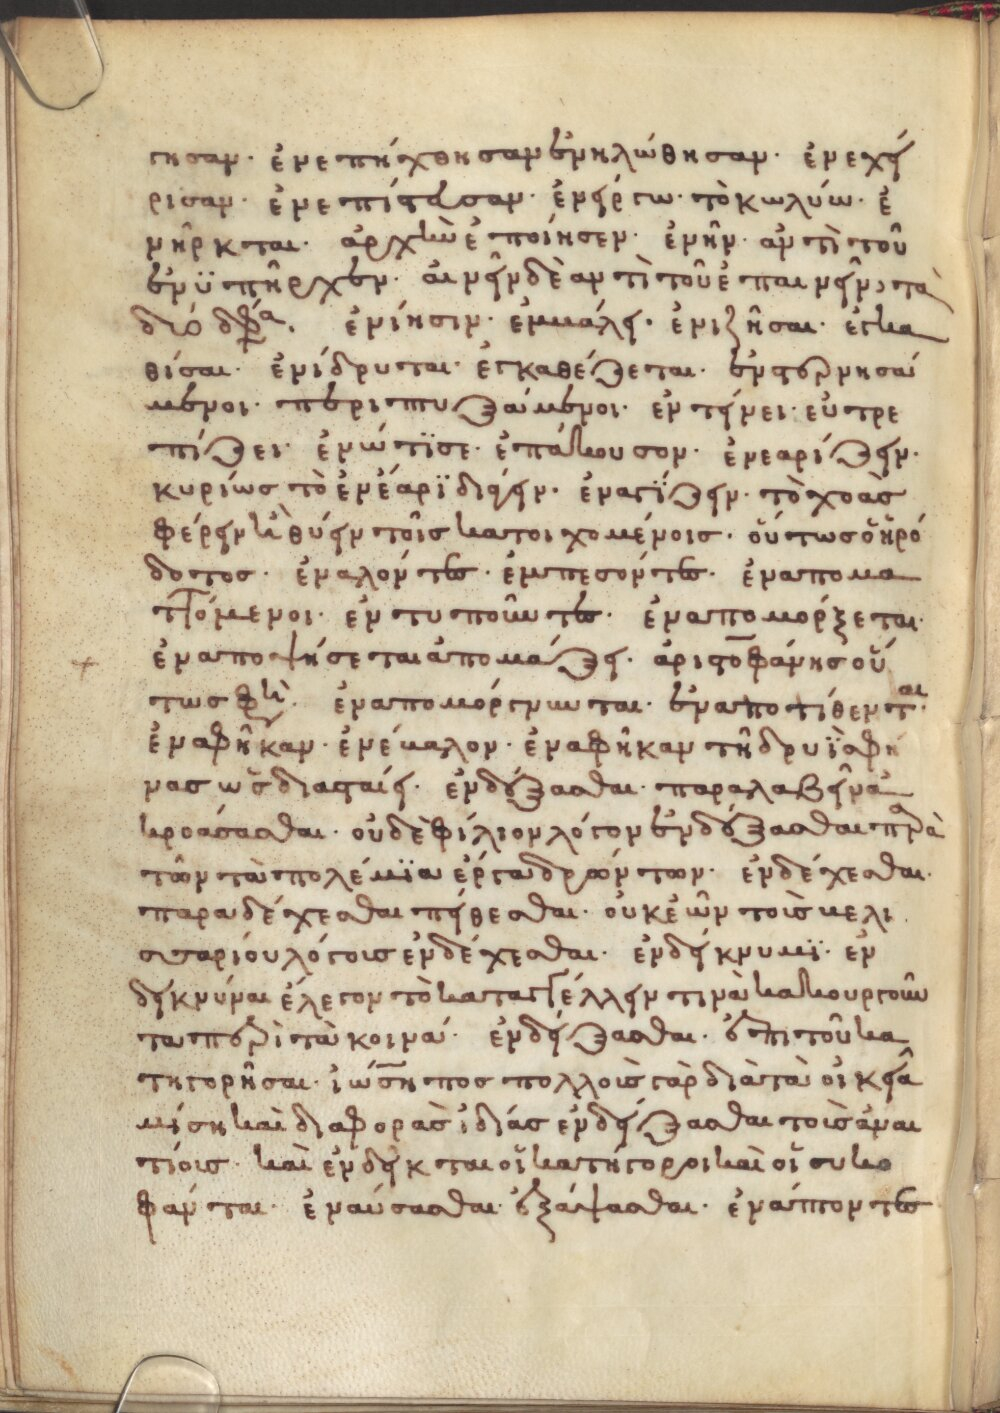 γησαν· ἐνεπήχθησαν ἐνηλώθησαν· ἐνεχεί
ρισαν· ἐνεπίστευσαν· ἐνείργω· τὸ κωλύω· ἐ
νῆρκται· ἀρχὴν ἐποίησεν· ἐνῆν· ἀντὶ τοῦ
ἐνϋπῆρχεν· αἰνεῖν δὲ ἀντὶ τοῦ ἐπαινεῖν,
ἐνίησιν· ἐμβάλει· ἐνιζῆσαι· ἐγκα
θίσαι· ἐνίδρυται· ἐγκαθέζεται·
μενοι· περιπτυξάμενοι· ἐντύνει· εὐτρε
πίζει· ἐνώτϊσε· ἐπάκουσον· ἐνεαρίζειν·
κυρίως τὸ ἐν ἔαρϊ διάγειν· ἐναγΐζειν· τὸ χοὰς
φέρειν καὶ θύειν τοῖς κατοιχομένοις· οὕτως ὁ ἡρό
δοτος· ἐναλόντες· ἐμπεσόντες· ἐναπομα
ττόμενοι· ἐντυποῦντες· ἐναπομόρξεται·
ἐναποψήσεται ἀπομάξει· ἀριστοφάνης οὕ
τως φησί· ἐναπομόργνυται· ἐναποτίθενται·
ἐναφῆκαν· ἐνέβαλον· ἐναφῆκαν τῇ δρυῒ ἀφη
νας ὡς διασταίη· ἐνδύξασθαι· παραλαβεῖν ἀ
κροάσασθαι· οὐδὲ φίλιον λόγον ἐνδύξασθαι παρὰ
τῶν τὰ πολέμϊα ἔργα δρώντων· ἐνδέχεσθαι·
παραδέχεσθαι πείθεσθαι· οὐκ ἐῶν τοῖς βελι
σαρίου λόγοις ἐνδέχεσθαι· ἐνδείκνυμϊ· ἐν
δεικνύναι ἔλεγον τὸ καταγγέλλειν τινὰ κακουργοῦν
τα περὶ τὰ κοινά· ἐνδείξασθαι· ἐπὶ τοῦ κα
τηγορῆσαι· ἰώσηπος πολλοὺς γὰρ διὰ τὰ οἰκεῖα
μίση καὶ διαφορὰς ἰδίας ἐνδείξασθαι τοὺς ἀναι
τίους· καὶ ἐνδεῖκται οἱ κατήγοροι καὶ οἱ συκο
φάνται· ἐναύσασθαι· ἐξάψασθαι· ἐνάπτοντες